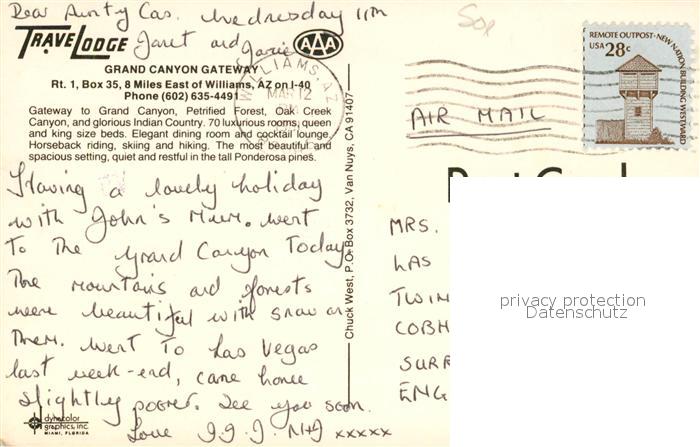 Dear Aunty Cas. Wednesday 11th
Janet and Jamie
TRAVELODGE
AAA
GRAND CANYON GATEWAY
Rt. 1, Box 35, 8 Miles East of Williams, AZ on I-40
Phone (602) 635-4491
Gateway to Grand Canyon, Petrified Forest, Oak Creek
Canyon, and glorious Indian Country. 70 luxurious rooms, queen
and king size beds. Elegant dining room and cocktail lounge.
Horseback riding, skiing and hiking. The most beautiful and
spacious setting, quiet and restful in the tall Ponderosa pines.
Having a lovely holiday
with John's Mum. Went
to the Grand Canyon Today
The mountains and forests
were beautiful with snow on
Them. Went to Las Vegas
last week-end, came home
slightly poorer. See you soon.
Love J.J.J. xxxxx
dynacolor
graphics, inc.
MIAMI, FLORIDA
Chuck West, P.O. Box 3732, Van Nuys, CA 91407
WILLIAMS, AZ
MAR 12
50x
AIR MAIL
REMOTE OUTPOST·NEW NATION BUILDING WESTWARD
USA 28c
Post Card
MRS.
LAS
TWIN
COBH
SURR
ENG
privacy protection
Datenschutz